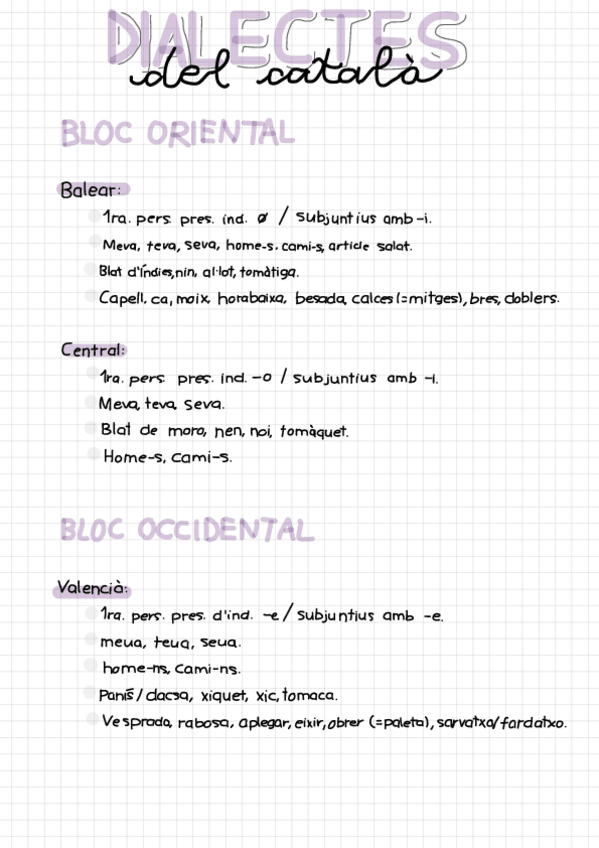 DIALECTES
del català
BLOC ORIENTAL
Balear:
1ra. pers. pres. ind. ø / subjuntius amb -i.
Meva, teva, seva, home-s. cami-s, article salat.
Blat d'índies, nin, al·lot, tomàtiga.
Capell, ca, moix, horabaixa, besada, calces (=mitges), bres, doblers.
Central:
1ra. pers. pres. ind. -o / subjuntius amb -i.
Meva, teva, seva.
Blat de moro, nen, noi, tomàquet.
Home-s, cami-s.
BLOC OCCIDENTAL
Valencià:
1ra. pers. pres. d'ind. -e / subjuntius amb -e.
meua, teua, seua.
home-ns, cami-ns.
Panís / dacsa, xiquet, xic, tomaca.
Vesprada, rabosa, aplegar, eixir, obrer (=paleta), sarvatxo/fardatxo.